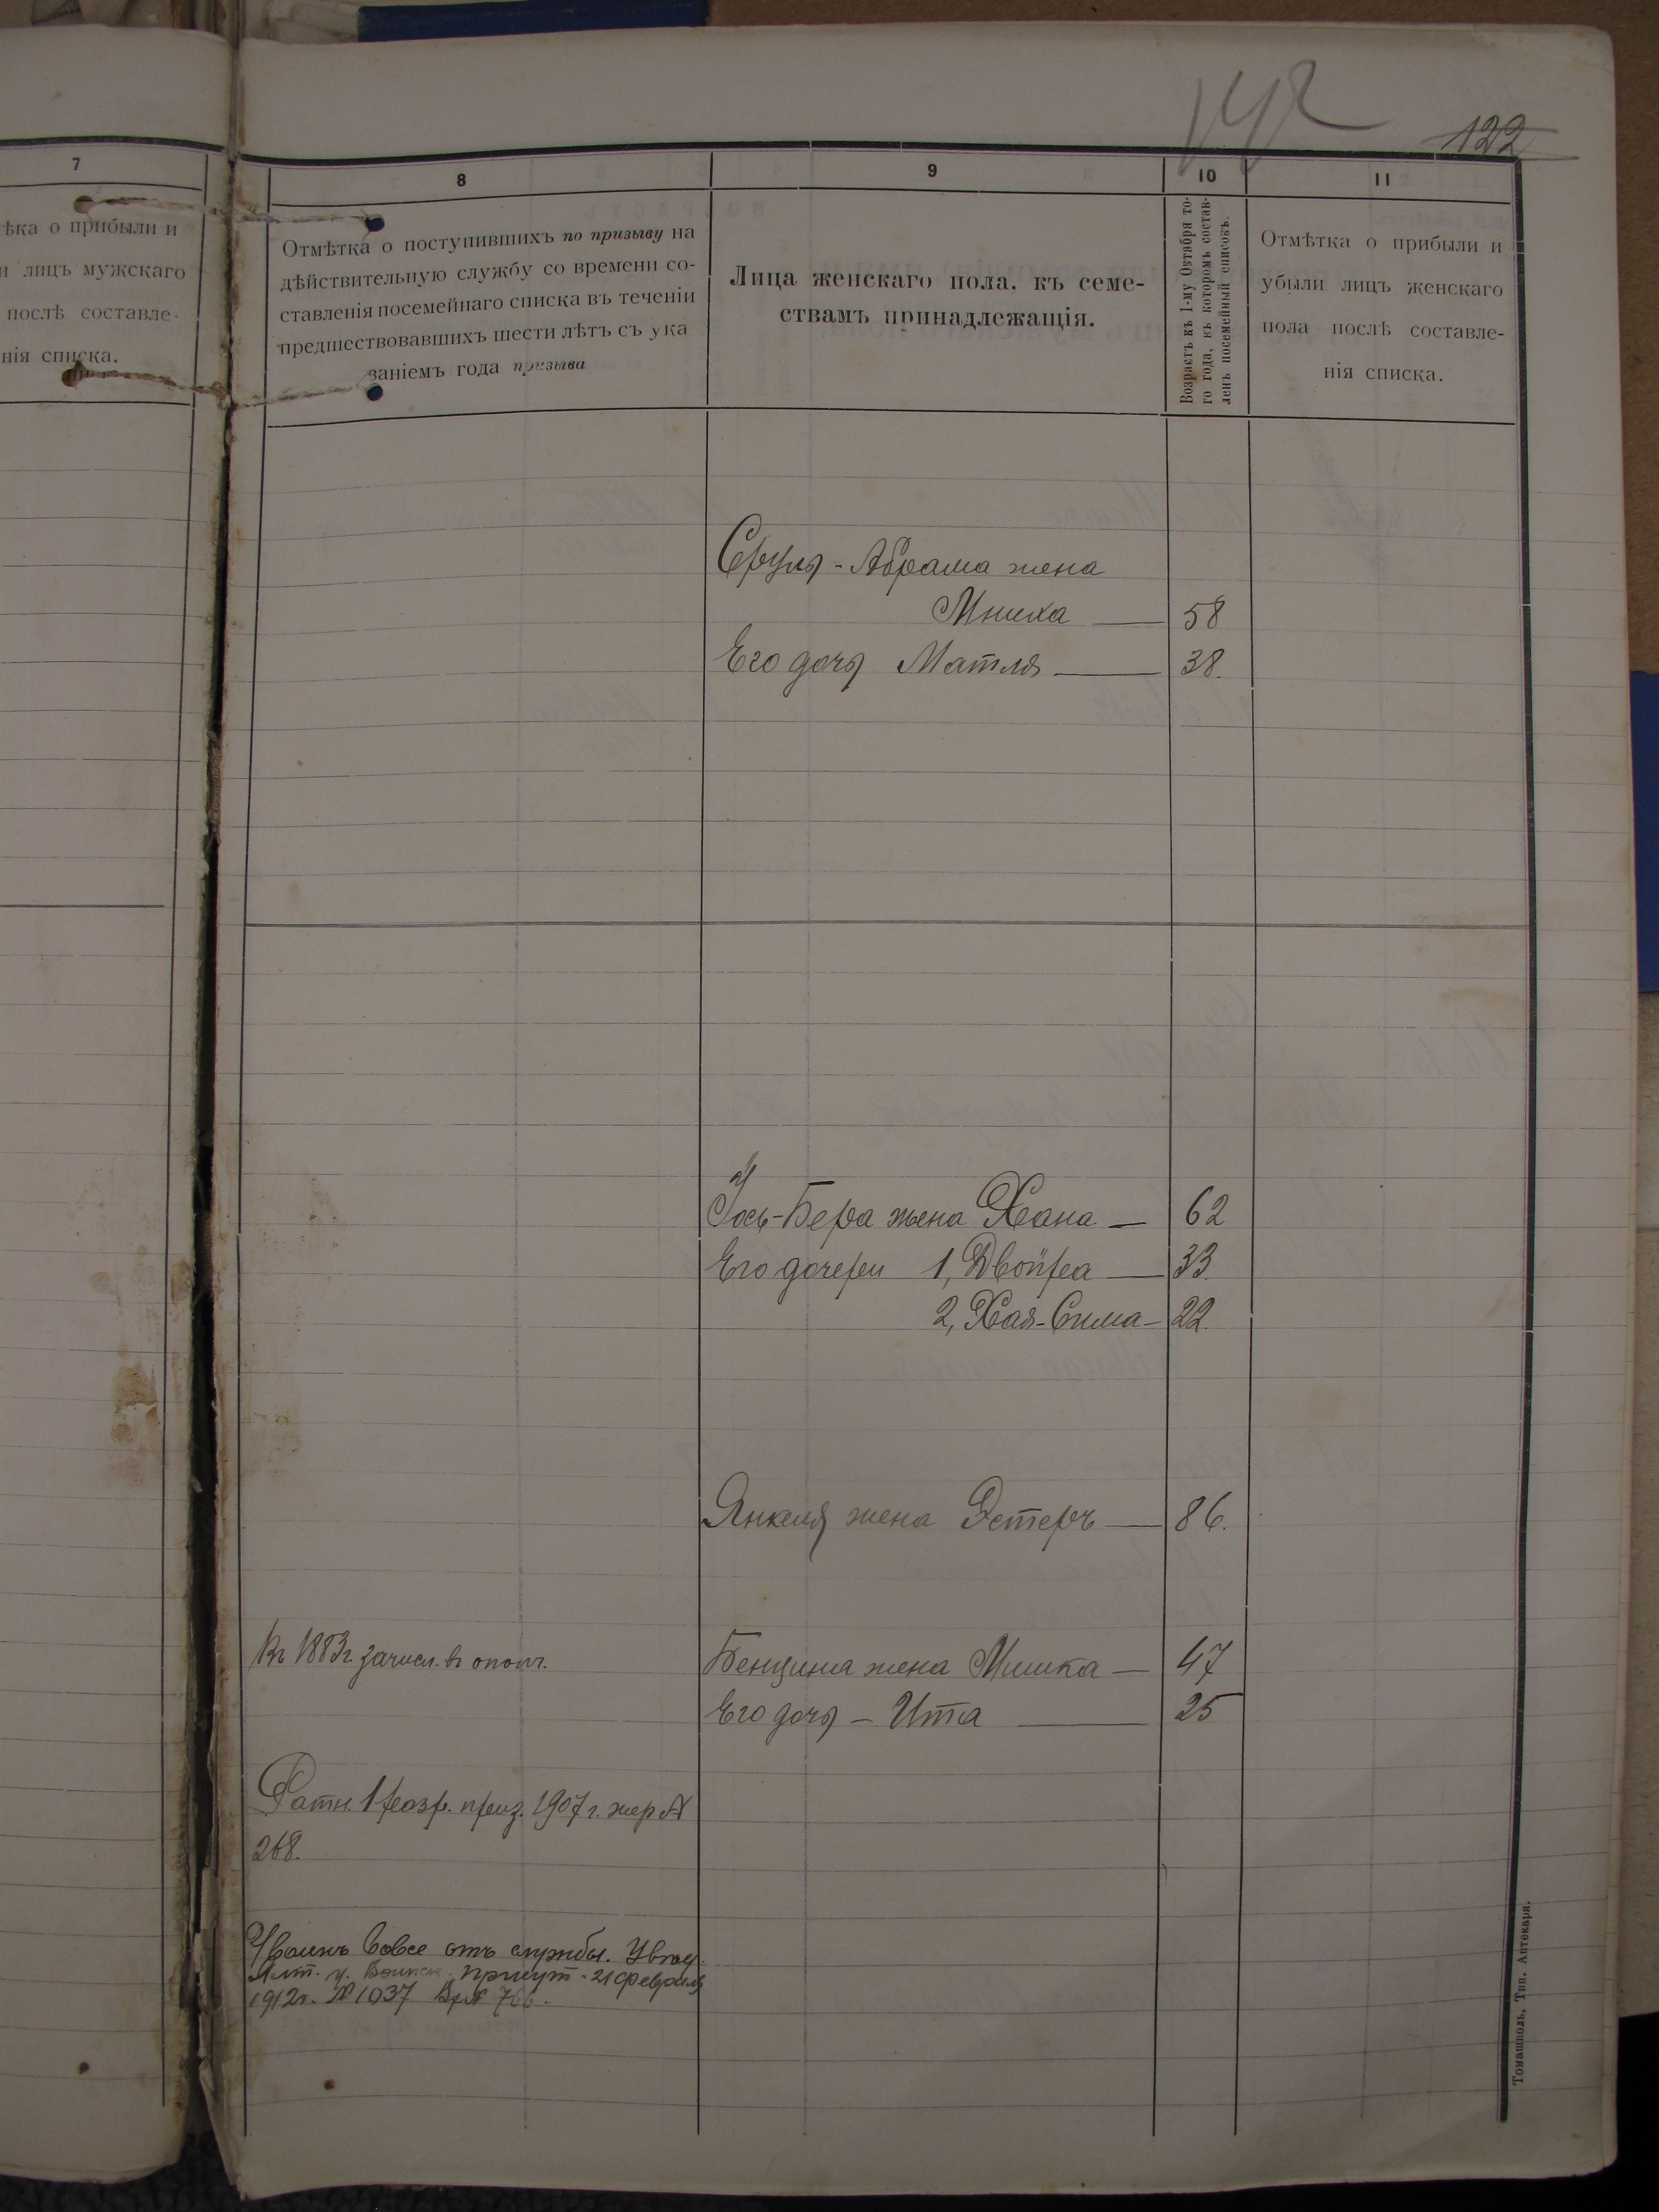 122
7
8
9
10
11
ѣка о прибыли и
и лицъ мужскаго
послѣ составле-
нія списка.
Отмѣтка о поступившихъ по призыву на
дѣйствительную службу со времени со-
ставленія посемейнаго списка въ теченіи
предшествовавшихъ шести лѣтъ съ ука
заніемъ года призыва
Лица женскаго пола, къ семе-
ствамъ принадлежащія.
Возрастъ къ 1-му Октября то-
го года, въ которомъ состав-
ленъ посемейный списокъ.
Отмѣтка о прибыли и
убыли лицъ женскаго
пола послѣ составле-
нія списка.
Сруля-Абрама жена
58
Его дочь Матля — 38.
Іось-Бера жена Хана — 62
Его дочери 1, Двойра — 33.
2, Хая-Сима — 22.
Янкеля жена Эстеръ — 86.
Въ 1883г. зачисл. въ ополч.
Бенциона жена Мишка — 47
Его дочь — Ита — 25
Ратн. 1 разр. приз. 1907 г. жер №
268.
Уволенъ вовсе отъ службы. Увѣд.
Ялт. у. Воинск. Присут. 21 февраля
1912г. № 1037 Вх № 766.
Томашполь, Тип. Аптекаря.